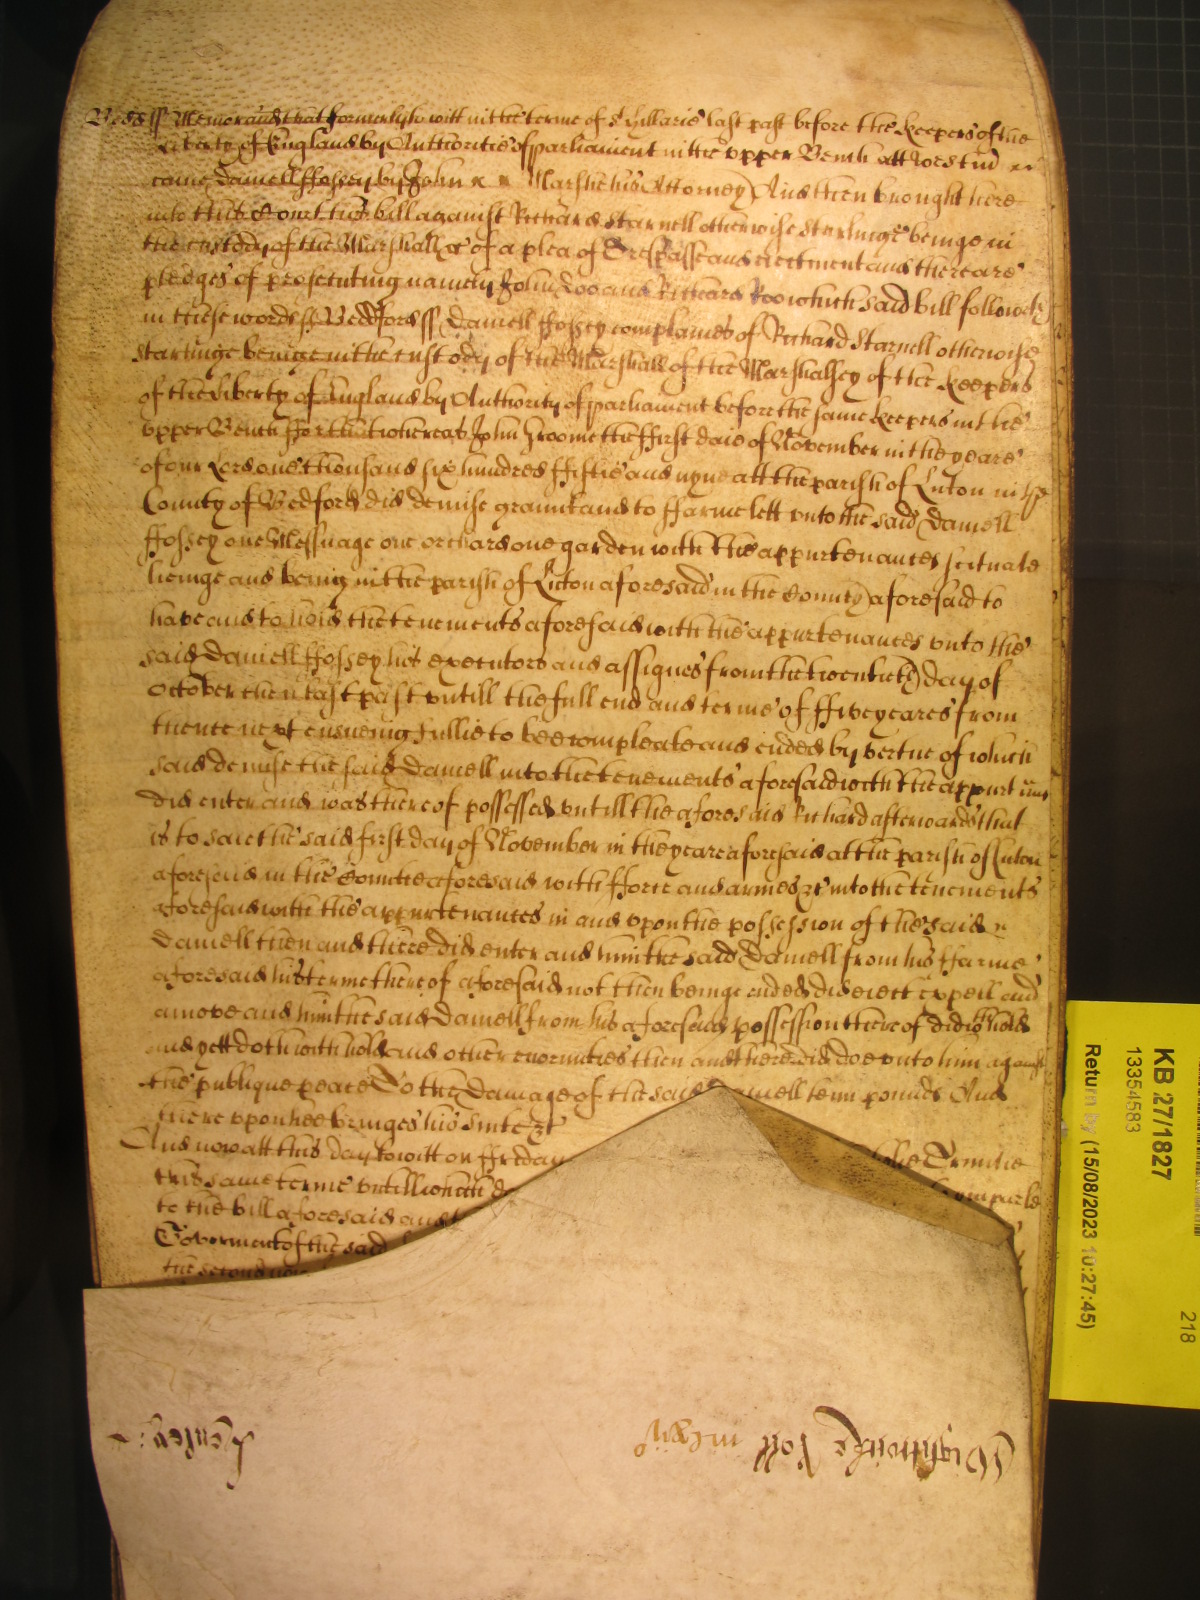 Bedd ss Memorand that formerly to witt in the terme of St Hillarie last past before the Keepers of the
liberty of England by Authoritie of parliament in the vpper Bench att Westm
came Daniell ffossey by John Marshe his Attorney And then brought here
into this Court his bill against Richard Starnell otherwise Starlinge beinge in
the custody of the Marshall &c of a plea of Trespasse and eiectment and there are
pledges of prosecuting namely John Doo and Richard Roo which said bill followeth
in these words ss Bedford ss Daniell ffossey complaines of Richard Starnell otherwise
Starlinge beinge in the custody of the Marshall of the Marshalsey of the Keepers
of the liberty of England by Authority of parliament before the same keepers in the
vpper Bench ffor that whereas John Groome the ffirst daie of November in the yeare
of our Lord one thousand six hundred ffiftie and nyne att the parish of Luton in the
County of Bedford did demise graunt and to ffarme lett vnto the said Daniell
ffossey one Messuage one orchard one garden with the appurtenances scituate
lieinge and being in the parish of Luton aforesaid in the County aforesaid to
have and to hold the tenements aforesaid with the appurtenances vnto the
said Daniell ffossey his executors and assignes from the twentieth day of
October then last past vntill the full end and terme of ffive yeares from
thence next ensueing fullie to bee compleate and ended by vertue of which
said demise the said Daniell into the tenements aforesaid with the appurt
did enter and was thereof possessed vntill the aforesaid Richard afterwards that
is to saie the said first day of November in the yeare aforesaid at the parish of Luton
aforesaid in the Countie aforesaid with fforce and armes &c into the tenements
aforesaid with the appurtenances in and vpon the possession of the said
Daniell then and there did enter and him the said Daniell from his ffarme
aforesaid his terme thereof aforesaid not then beinge ended did eiect expell and
amove and him the said Daniell from his aforesaid possession thereof did withhold
and yett doth withhold and other enormities then and there did doe vnto him against
the publique peace To the Damage of the said Daniell tenn pounds And
there vpon hee bringes his suite &c
And now att this day to witt on ffriday holie Trinitie
this same terme vntill which d
to the bill aforesaid and
Goverment of the said
the second
Wightwicke Roll
KB 27/1827
13354583
Return by (15/08/2023 10:27:45)
218